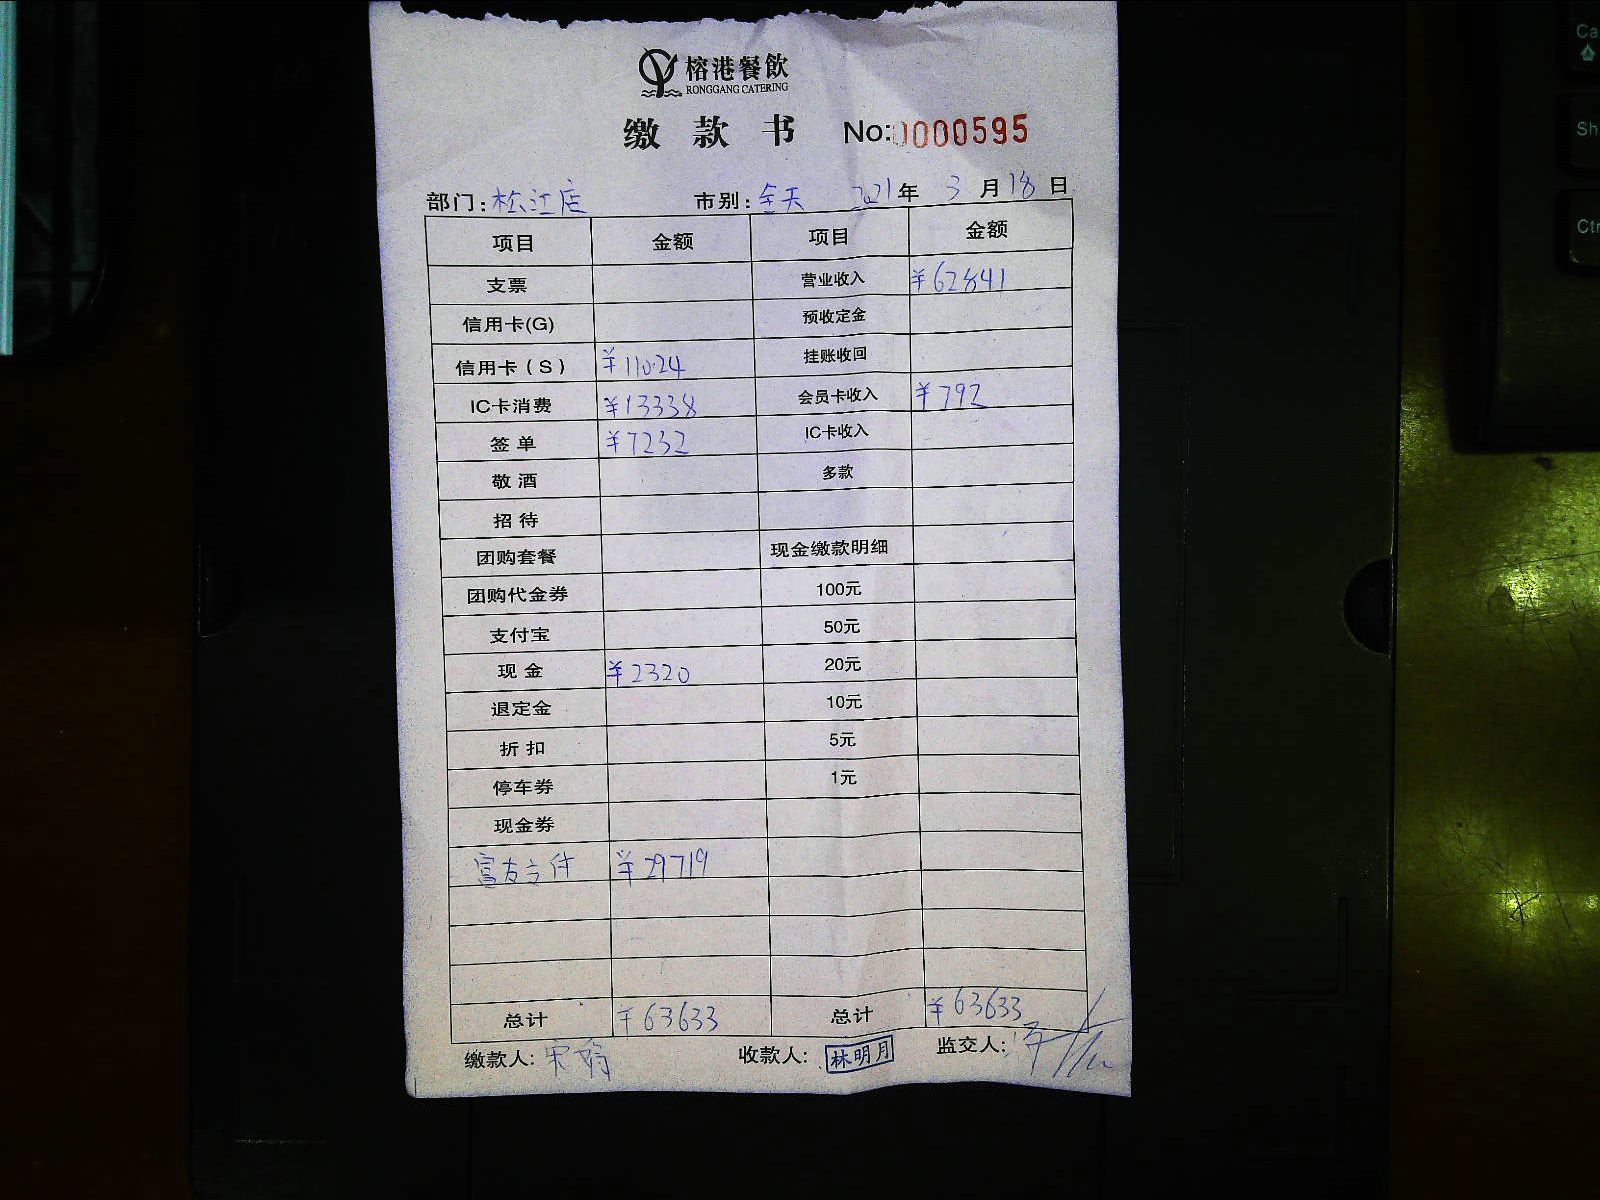 榕港餐飲
RONGGANG CATERING
缴款书 No:0000595
部门:松江店 市别:全天 2021年3月18日
项目 金额 项目 金额
支票 营业收入 ¥62841
信用卡(G) 预收定金
信用卡(S) ¥11024 挂账收回
IC卡消费 ¥13338 会员卡收入 ¥792
签单 ¥7232 IC卡收入
敬酒 多款
招待
团购套餐 现金缴款明细
团购代金券 100元
支付宝 50元
现金 ¥2320 20元
退定金 10元
折扣 5元
停车券 1元
现金券
富友支付 ¥29719
总计 ¥63633 总计 ¥63633
缴款人: 收款人: 林明月 监交人: